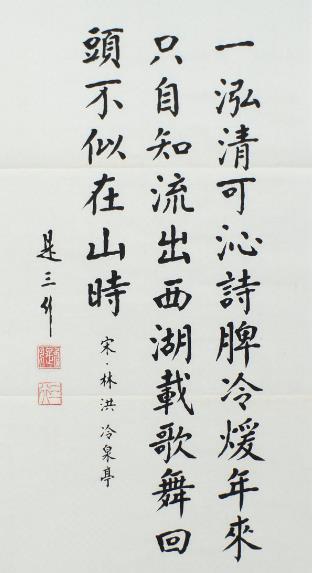 一泓清可沁詩脾冷煖年來
只自知流出西湖載歌舞回
頭不似在山時
宋·林洪冷泉亭
是三竹